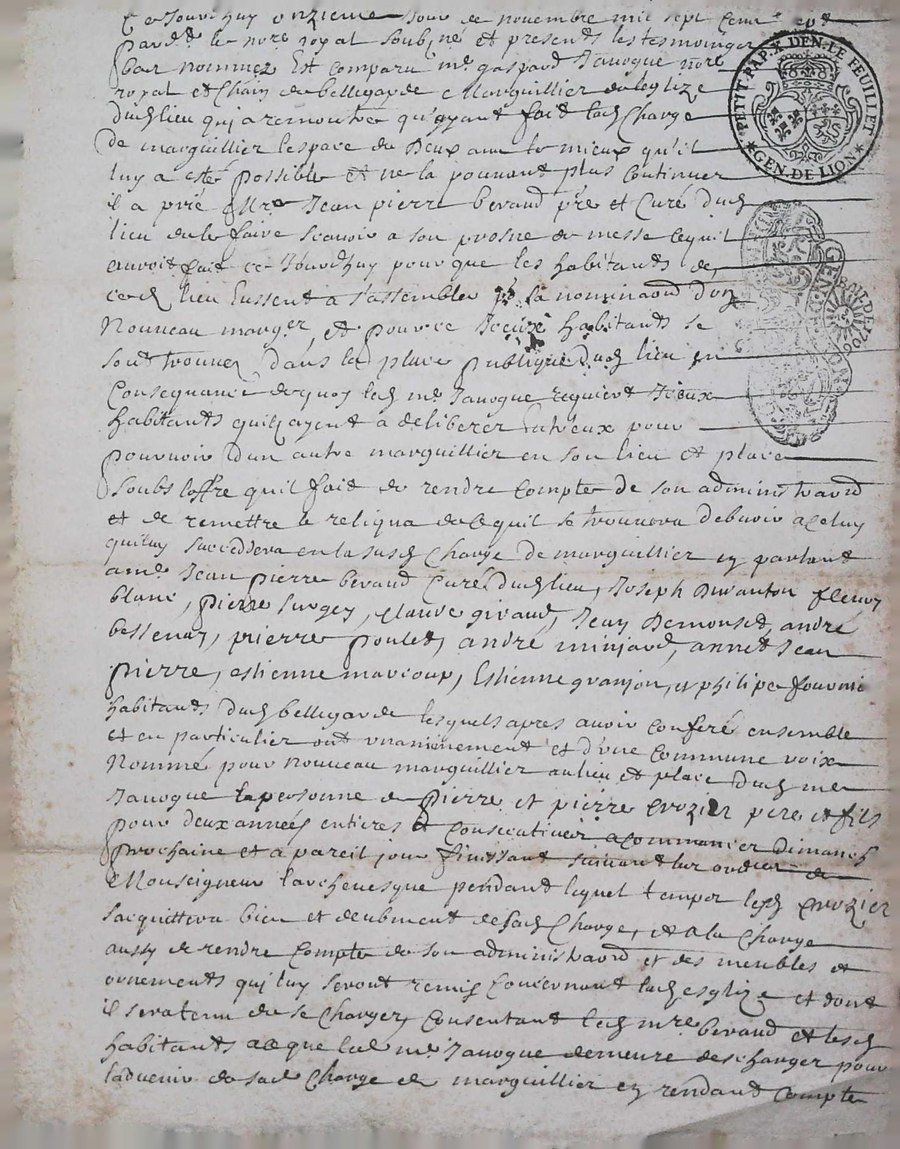 Ce Jourdhuy onzieme Jour de novembre mil sept Cent
pardt le nore royal soubzné et presents les tesmoingz
bas nommez Est comparu me gaspard Janoque nore
royal et Chain de bellegarde Marguillier de leglize
dud lieu qui a remontré qu'ayant fait lad Charge
de marguillier lespace de Deux ans le mieux qu'il
luy a esté possible et ne la pouvant plus Continuer
il a prié Mre Jean pierre beraud pre et Curé dud
lieu de le faire scavoir a son prosne de messe lequil
auroit fait ce Jourdhuy pour que les habitants de
ced lieu Eussent a s'assembler la nominaond d'un
Nouveau marger et pour ce Iceux habitants se
sont trouvez dans la place publique dud lieu en
Consequance de quoy led me Janoque requiert Iceux
habitants quilz ayent a deliberer Entreux pour
pourvoir dun autre marguillier en son lieu et place
soubs loffre quil fait de rendre Compte de son administraond
et de remettre le reliqua de ce quil se trouvera debvoir a celuy
qui luy succeddera en la susd Charge de marguillier en parlant
a me Jean pierre beraud Curé dud lieu, Joseph Duranton fleury
blanc, pierre surgey, Claude giraud, Jean Demonset, andré
bessenay, prierre poulet, andré minjard, annet Jean
pierre, estienne marcoup, Estienne granjon, et philipe fournie
habitants dud bellegarde lesquels apres avoir conferé ensemble
et en particulier ont unanimement et d'une Commune voix
Nommé pour nouveau marguillier au lieu et place dud me
Janoque la personne de pierre et pierre Crozier pere et fils
pour deux années entieres et consecutives a commancer dimanch
prochaine et a pareil jour finissant suivant lordre de
Monseigneur l'archevesque pendant lequel temps lesd Crozier
sacquittera bien et deubment de sad Charge, et a la Charge
aussy de rendre Compte de son administraond et des meubles et
ornements qui luy seront remis Concernant lad esglize et dont
il sera tenu de se Charger, Consentant led mre beraud et lesd
habitants a ce que led me Janoque demeure deschargez pour
ladvenir de sad Charge de marguillier en rendant Compte
PETIT.PAP.X DEN.LE FEUILLET
GEN.DE LION